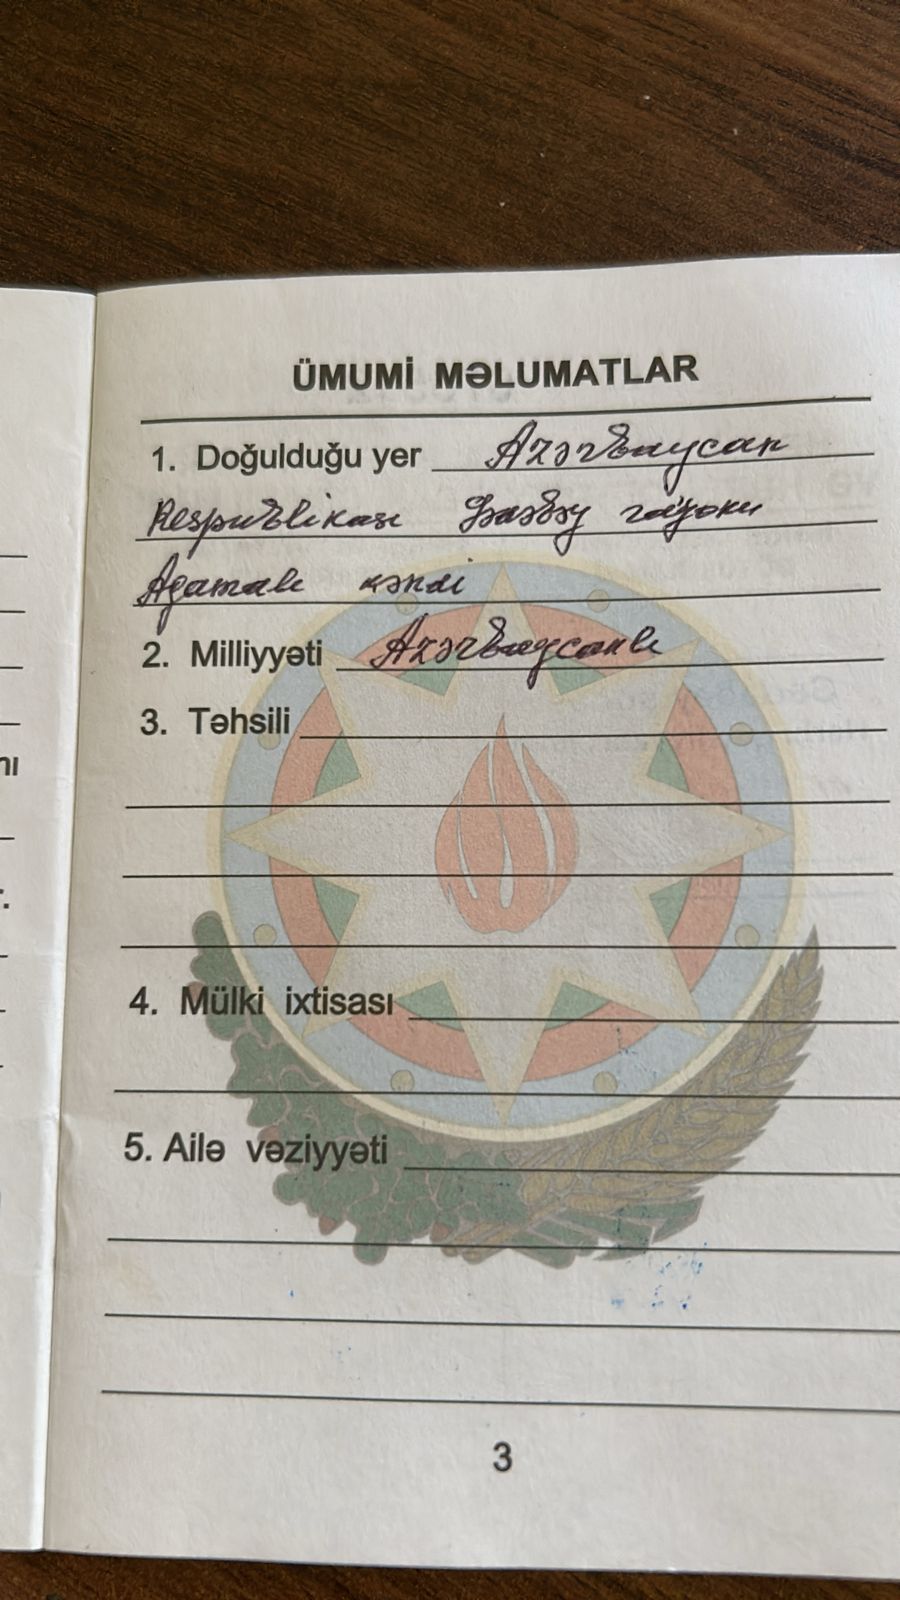 ÜMUMİ MƏLUMATLAR
1. Doğulduğu yer Azərbaycan
Respublikası Gədəbəy rayonu
Ağamalı kəndi
2. Milliyyəti Azərbaycanlı
3. Təhsili
4. Mülki ixtisası
5. Ailə vəziyyəti
3